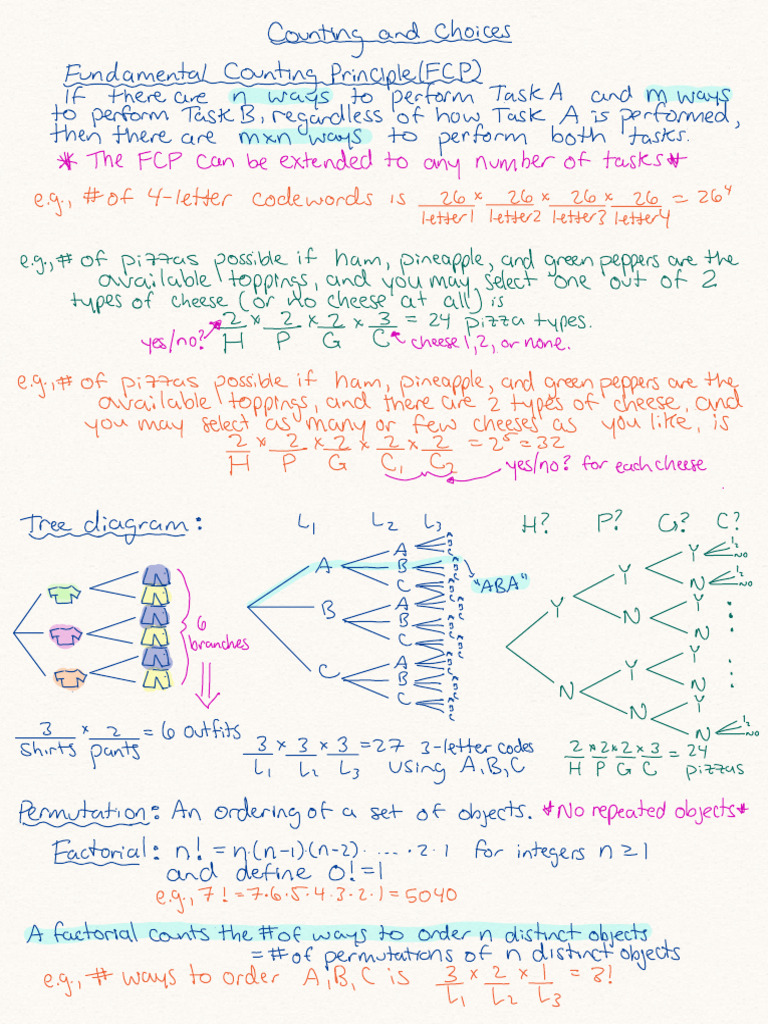 Counting and Choices
Fundamental Counting Principle (FCP)
If there are n ways to perform Task A and m ways
to perform Task B, regardless of how Task A is performed,
then there are m×n ways to perform both tasks.
* The FCP can be extended to any number of tasks *
e.g., # of 4-letter codewords is 26 × 26 × 26 × 26 = 26⁴
letter1 letter2 letter3 letter4
e.g., # of pizzas possible if ham, pineapple, and green peppers are the
available toppings, and you may select one out of 2
types of cheese (or no cheese at all) is
2 × 2 × 2 × 3 = 24 pizza types.
yes/no? H P G C cheese 1, 2, or none.
e.g., # of pizzas possible if ham, pineapple, and green peppers are the
available toppings, and there are 2 types of cheese, and
you may select as many or few cheeses as you like, is
2 × 2 × 2 × 2 × 2 = 2⁵ = 32
H P G C₁ C₂
yes/no? for each cheese
Tree diagram:
6
branches
3 × 2 = 6 outfits
shirts pants
L₁ L₂ L₃
A
B
C
A
B
C
A
B
C
A
B
C
"ABA"
3 × 3 × 3 = 27 3-letter codes
L₁ L₂ L₃ using A, B, C
H? P? G? C?
Y
N
Y
N
Y
N
Y
N
Y
N
Y
N
Y
N
1
2
NO
1
2
NO
1
2
NO
2 × 2 × 2 × 3 = 24
H P G C pizzas
Permutation: An ordering of a set of objects. *No repeated objects*
Factorial: n! = n·(n-1)·(n-2)· .... ·2·1 for integers n ≥ 1
and define 0! = 1
e.g., 7! = 7·6·5·4·3·2·1 = 5040
A factorial counts the # of ways to order n distinct objects
= # of permutations of n distinct objects
e.g., # ways to order A, B, C is 3 × 2 × 1 = 3!
L₁ L₂ L₃